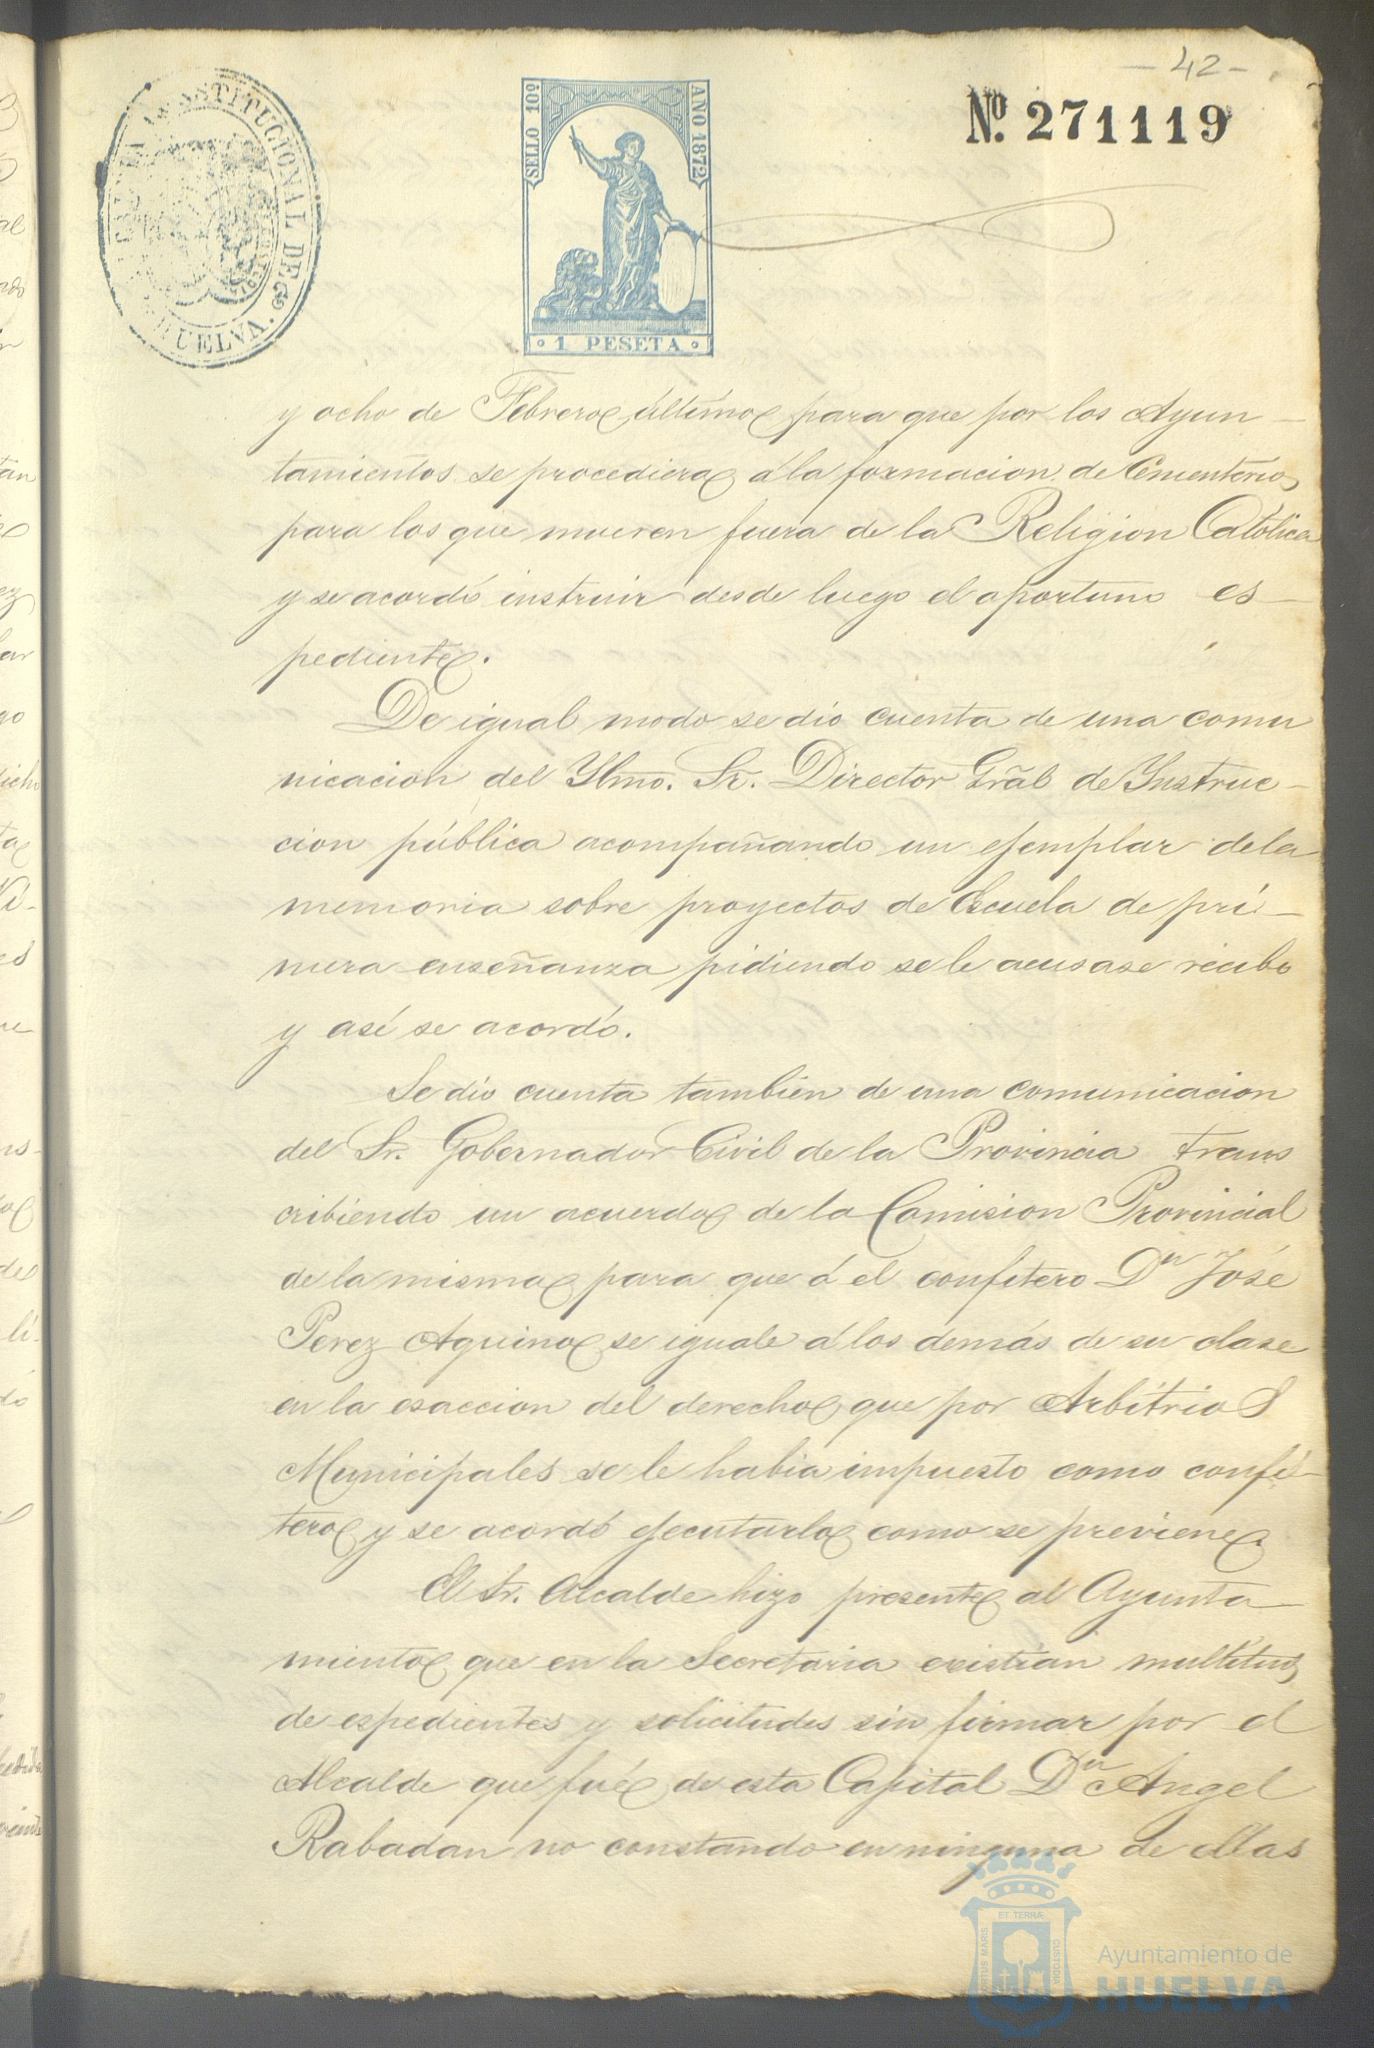 - 42 -
Nº. 271119
SELLO 10º
AÑO 1872
1 PESETA
CONSTITUCIONAL DE
HUELVA.
y ocho de Febrero último para que por los Ayun-
tamientos se procediera á la formacion de Cementerios
para los que mueren fuera de la Religion Católica
y se acordó instruir desde luego el oportuno es-
pediente.
De igual modo se dio cuenta de una comu
nicacion del Ylmo. Sr. Director Gral de Ynstruc-
cion pública acompañando un ejemplar de la
memoria sobre proyectos de Escuela de pri-
mera enseñanza pidiendo se le acusase recibo
y así se acordó.
Se dio cuenta tambien de una comunicacion
del Sr. Gobernador Civil de la Provincia trans
cribiendo un acuerdo de la Comision Provincial
de la misma para que á el confitero Dn José
Perez Aquino se iguale á los demás de su clase
en la esaccion del derecho que por Arbitrios
Municipales se le habia impuesto como confi-
tero y se acordó ejecutarlo como se previene.
El Sr. Alcalde hizo presente al Ayunta-
miento que en la Secretaria existian multitud
de espedientes y solicitudes sin firmar por el
Alcalde que fué de esta Capital Dn Angel
Rabadan no constando en ninguna de ellas
PORTUS MARIS
ET TERRÆ
CUSTODIA
Ayuntamiento de
HUELVA